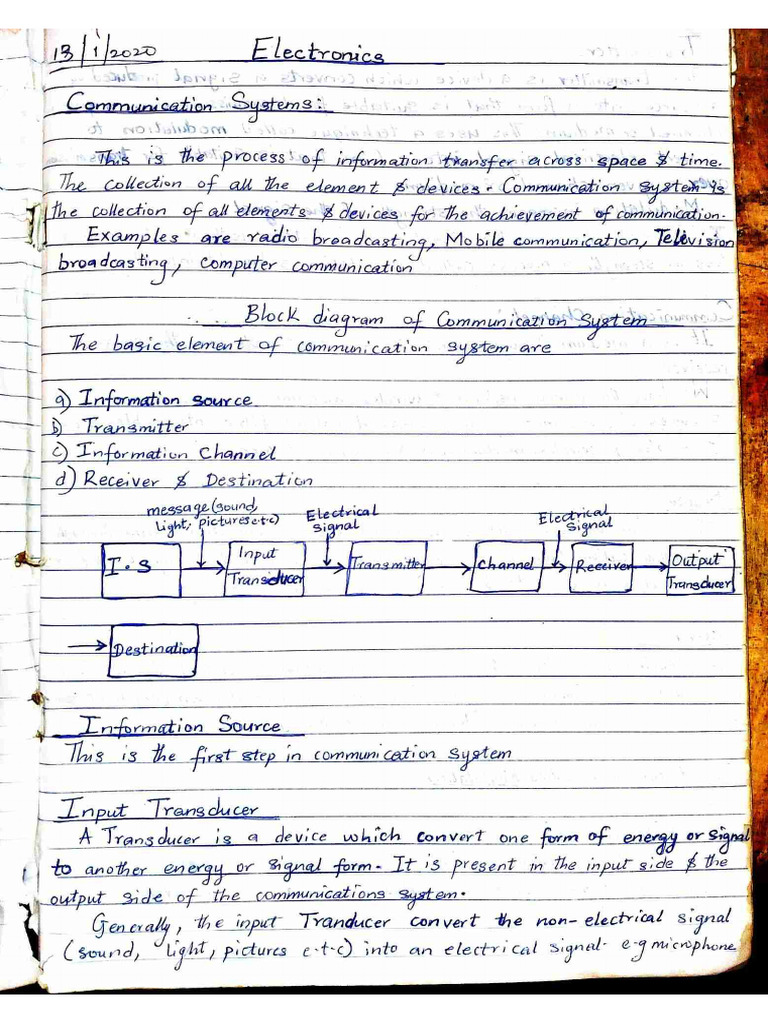 13/1/2020 Electronics
Communication Systems:
This is the process of information transfer across space & time.
The collection of all the element & devices. Communication system is
the collection of all elements & devices for the achievement of communication.
Examples are radio broadcasting, Mobile communication, Television
broadcasting, computer communication
Block diagram of Communication System
The basic element of communication system are
a) Information source
b) Transmitter
c) Information Channel
d) Receiver & Destination
message (sound,
light, pictures e.t.c)
Electrical
Signal
Electrical
Signal
I.S
Input
Transducer
Transmitter
Channel
Receiver
Output
Transducer
Destination
Information Source
This is the first step in communication system
Input Transducer
A Transducer is a device which convert one form of energy or signal
to another energy or signal form. It is present in the input side & the
output side of the communications system.
Generally, the input Tranducer convert the non-electrical signal
(sound, light, pictures e.t.c) into an electrical signal. e.g microphone